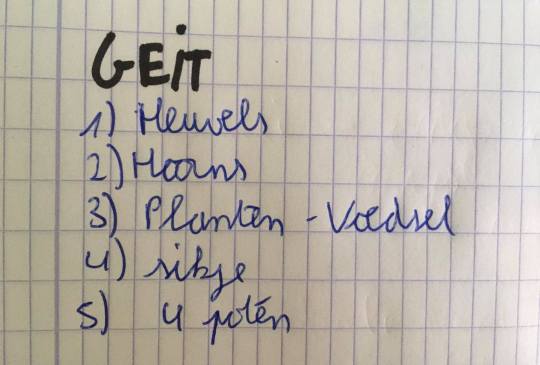 GEiT
1) Heuvels
2) Hoorns
3) Planten - Voedsel
4) sikje
5) 4 poten